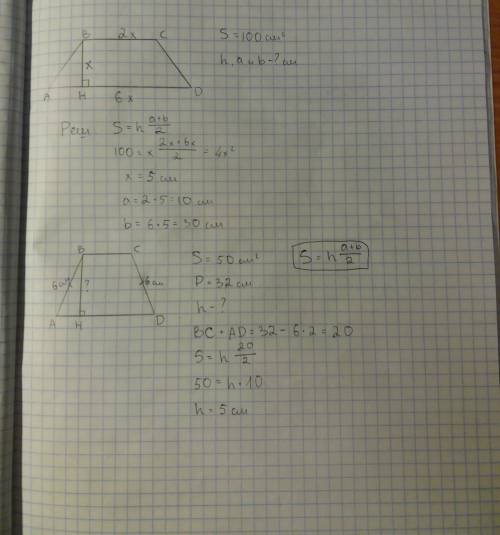 B 2x C
x
A H 6x D
S = 100 см²
h, a и b - ? см
Реш S = h (a+b)/2
100 = x (2x+6x)/2 = 4x²
x = 5 см
a = 2·5 = 10 см
b = 6·5 = 30 см
B C
6 см ? 6 см
A H D
S = 50 см²
S = h (a+b)/2
P = 32 см
h - ?
BC + AD = 32 - 6·2 = 20
S = h 20/2
50 = h·10
h = 5 см